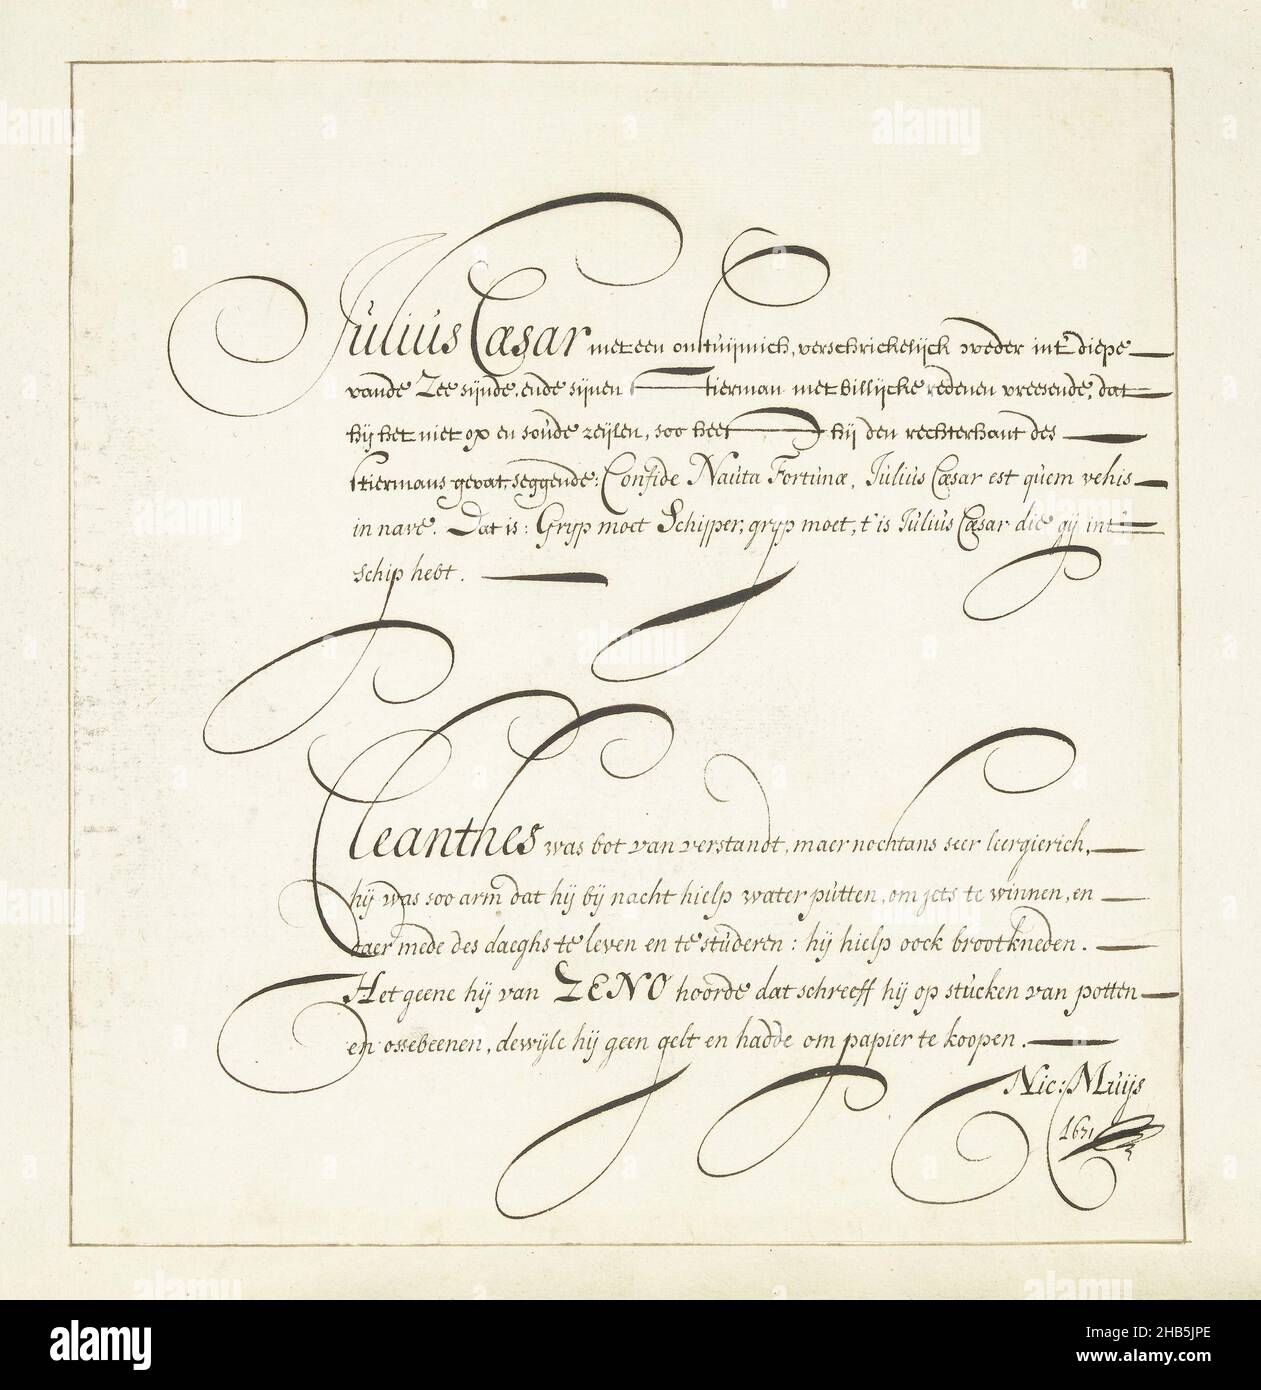 Julius Cæsar met een onstuijmich, verschrickelijck weder int diepe
vande Zee sijnde, ende sijnen Stierman met billijcke redenen vreesende, dat
hij het niet op en soude zeijlen, soo heeft hij den rechterhant des
Stiermans gevat, seggende: Confide Nauta Fortunæ, Julius Cæsar est quem vehis
in nave. Dat is: Gryp moet Schipper, gryp moet, t'is Julius Cæsar die gij int
schip hebt.
Cleanthes was bot van verstandt, maer nochtans seer leergierich,
hij was soo arm dat hij bij nacht hielp water putten, om jets te winnen, en
daer mede des daeghs te leven en te studeren: hij hielp oock brootkneden.
Het geene hij van ZENO hoorde dat schreeff hij op stucken van potten
en ossebeenen, dewijle hij geen gelt en hadde om papier te koopen.
Nic: Muijs
alamy
Image ID: 2HB5JPE
www.alamy.com